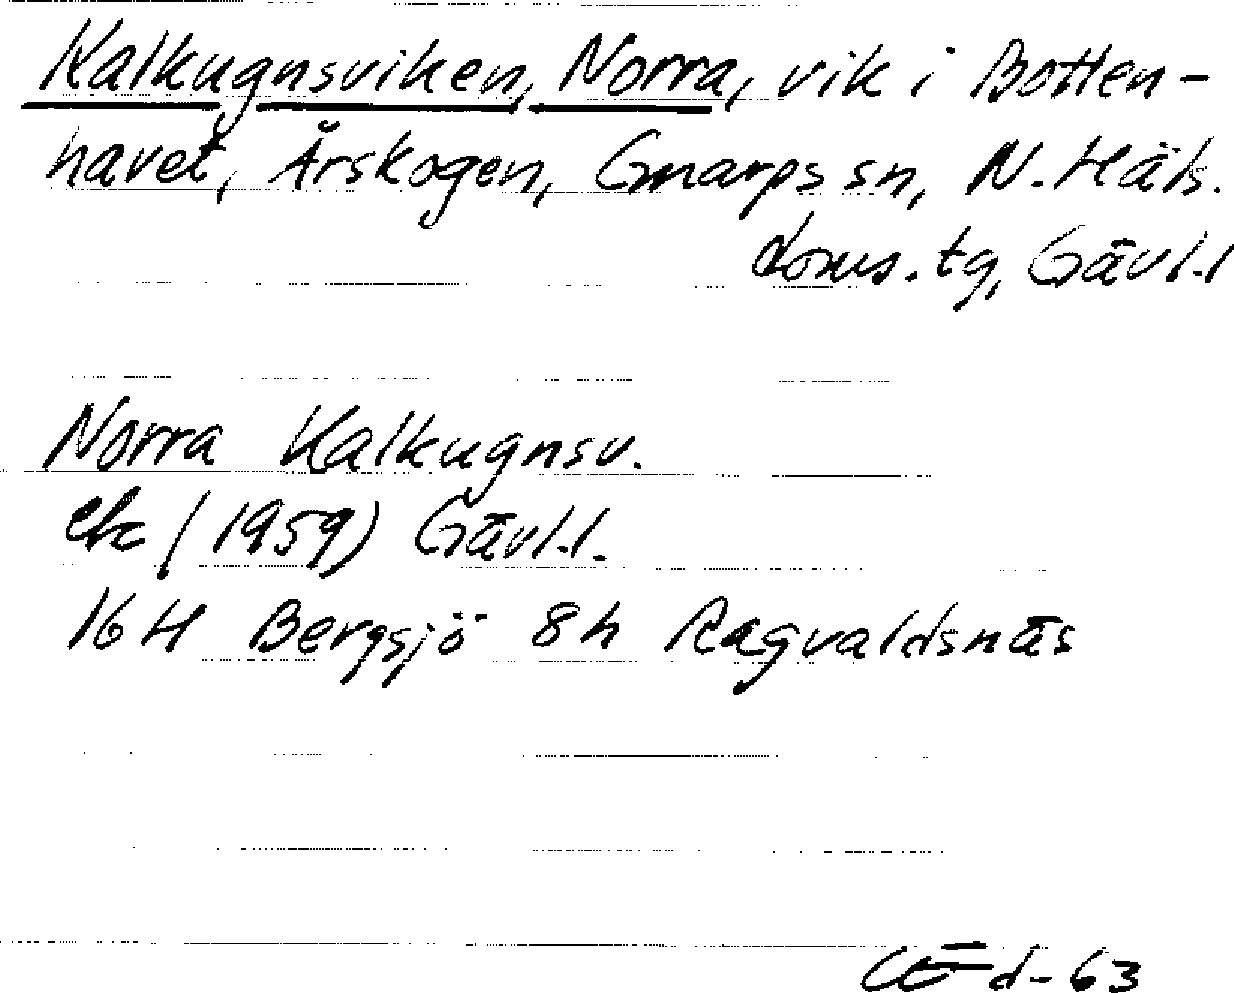 Kalkugnsviken, Norra, vik i Botten-
havet, Årskogen, Gnarps sn, N. Häls.
doms. tg, Gävl.l
Norra Kalkugnsv.
ek (1959) Gävl.l.
16 H Bergsjö 8h Ragvaldsnäs
d-63